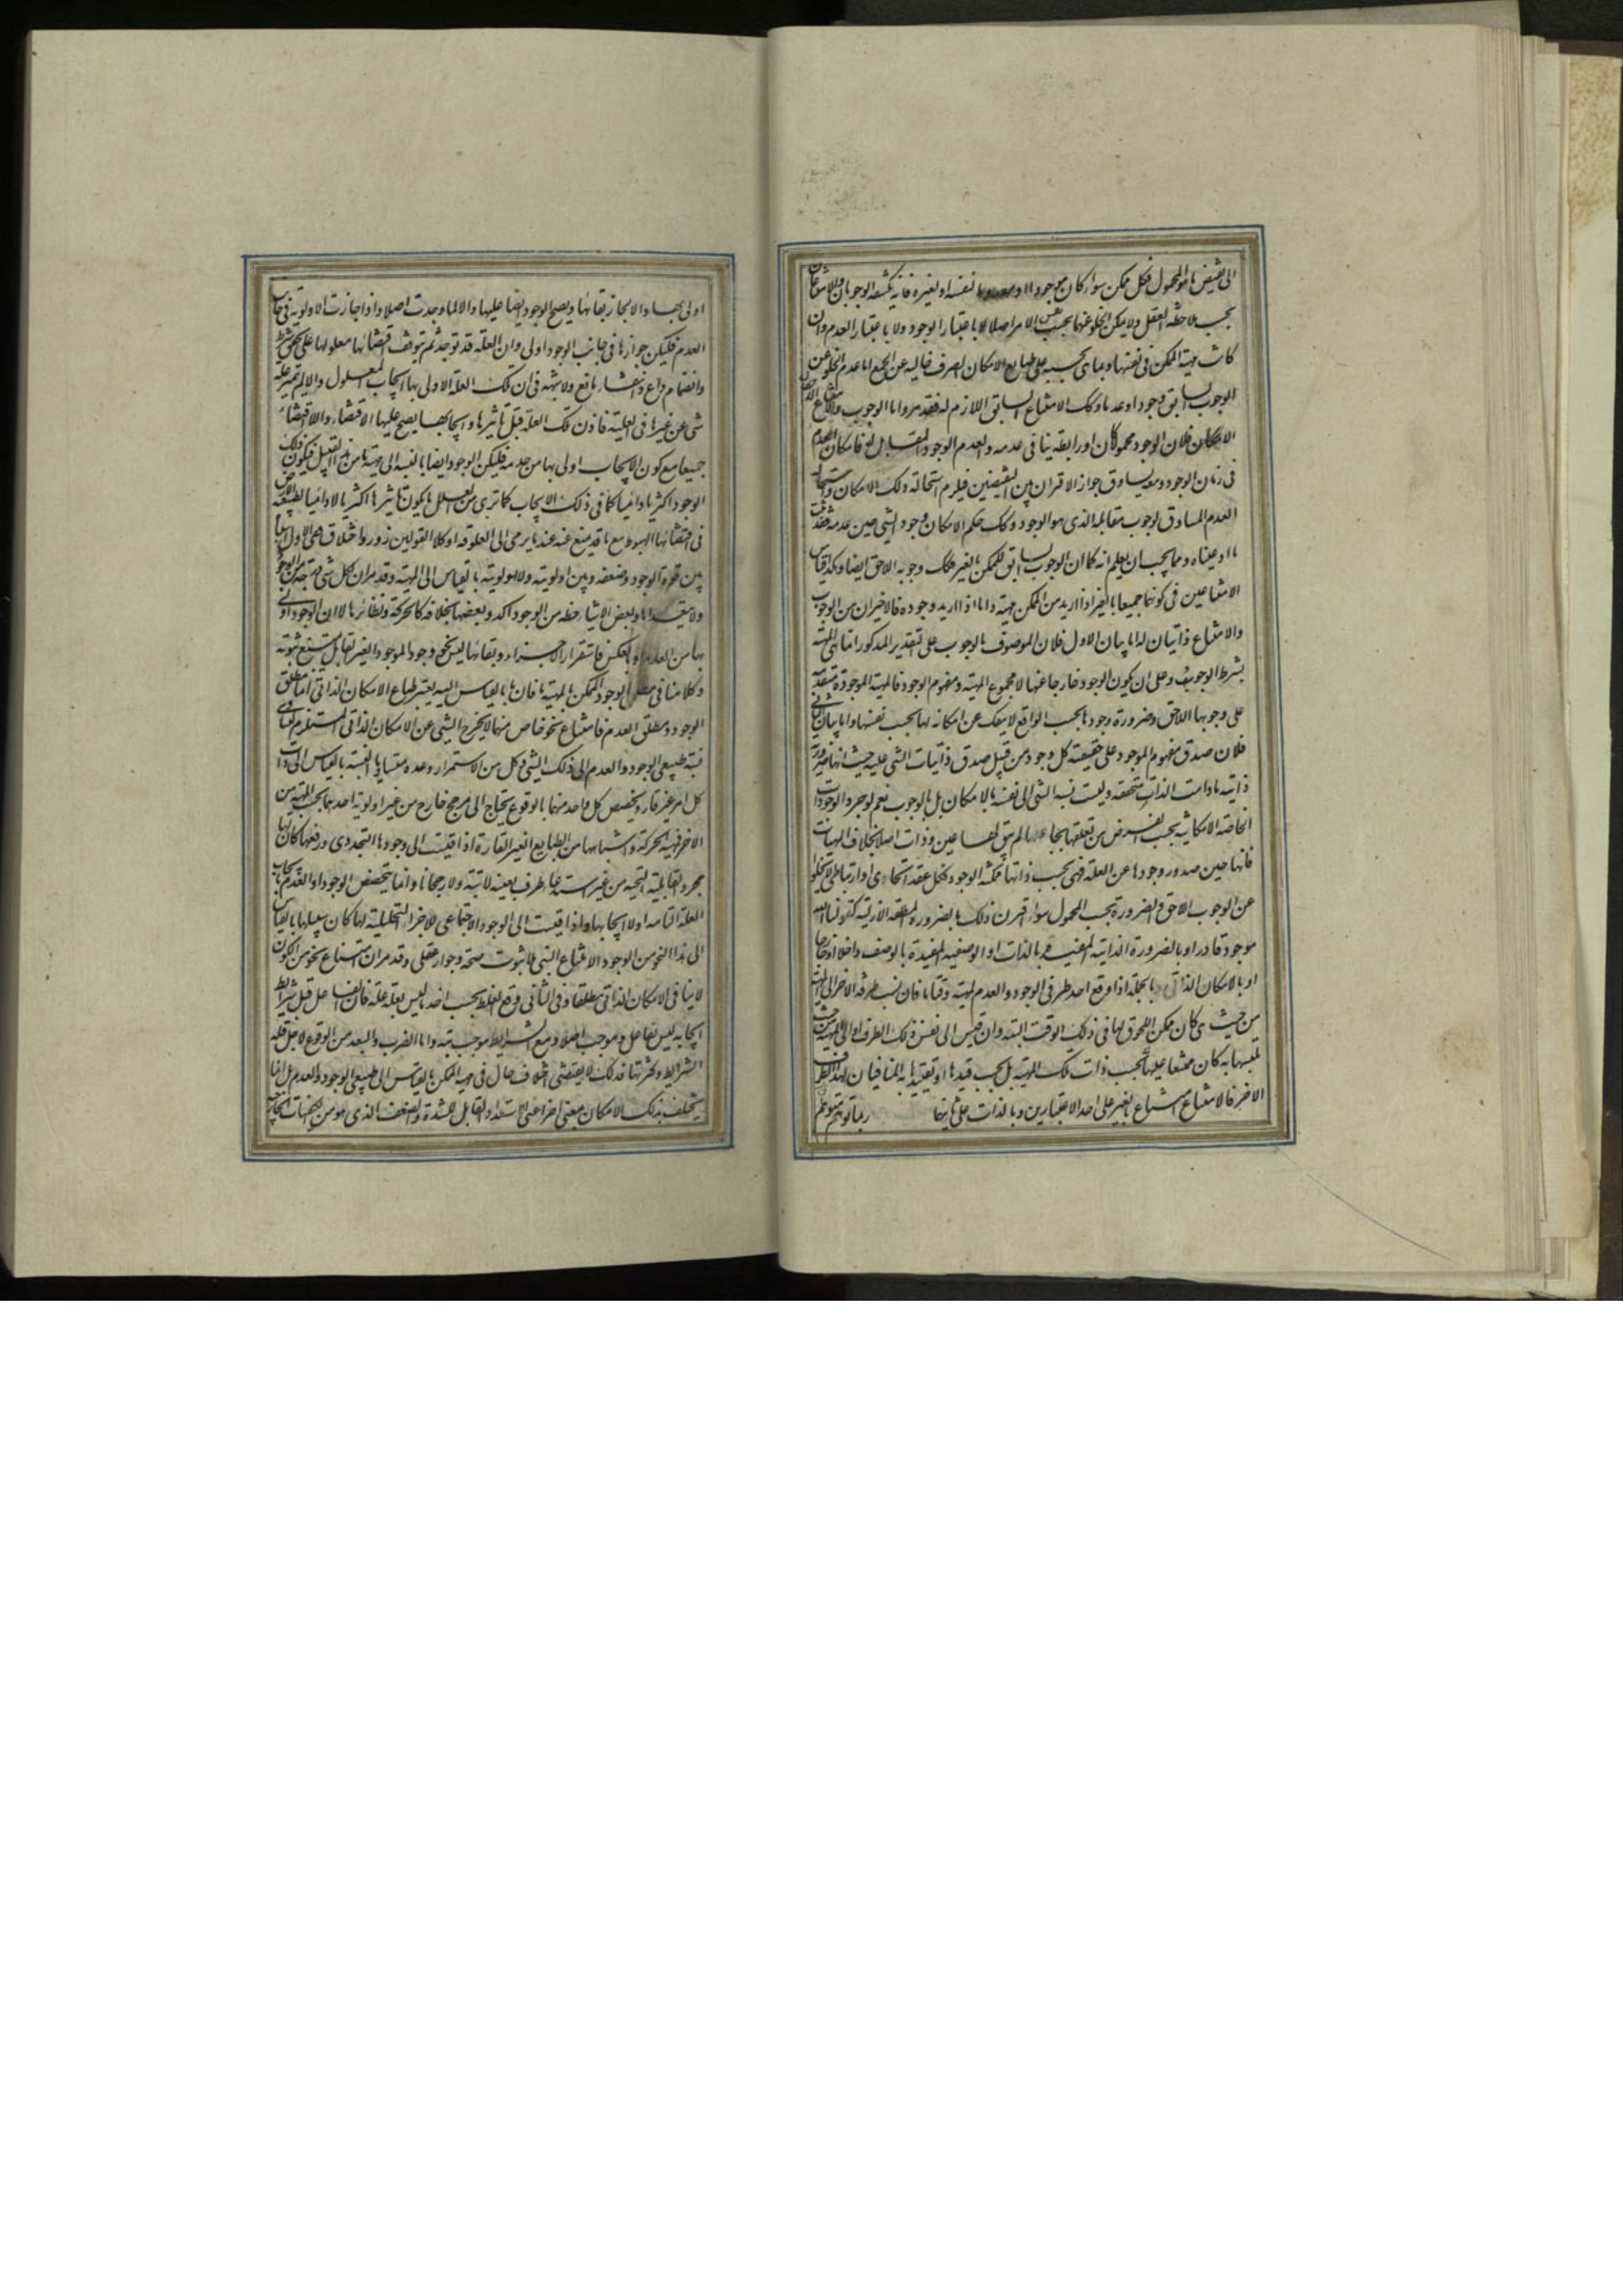 الى نقيض ما هو المحمول فكل ممكن سواء كان موجودا او معدوما بنفسه او بغيره فانه يكتنفه الوجوبان والامتناعان
بحسب ملاحظة العقل ولا يمكن الخلو عنهما بحسب نفس الامر اصلا لا باعتبار الوجود ولا باعتبار العدم وان
كانت مهية الممكن فى نفسها وبما هى بحسبه على طباع الامكان الصرف خالية عن الجميع اما عدم الخلو عن
الوجوب السابق وجودا وعدما وكك الامتناع السابق اللازم له فقد مر واما الوجوب والامتناع اللاحقان
فلان الوجود محمولا كان او رابطة ينافى عدمه والعدم الوجود المقابل له فامكان العدم
فى زمان الوجود ومعه يساوق جواز الاقتران بين النقيضين فيلزم استحالة ذلك الامكان واستحالة
العدم المساوق لوجوب مقابله الذى هو الوجود وكك حكم الامكان وجود الشئ حين عدمه فقد ثبت
ما ادعيناه ومما يجب ان يعلم انه كما ان الوجوب السابق للممكن بالغير فكك وجوبه اللاحق ايضا وكذا قياس
الامتناعين فى كونهما جميعا بالغير اذا اريد من الممكن مهيته واما اذا اريد وجوده فالاخيران من الوجوب
والامتناع ذاتيان له اما بيان الاول فلان الموصوف بالوجوب على التقدير المذكور انما هى المهية
بشرط الوجود وعلى ان يكون الوجود خارجا عنها لا مجموع المهية ومفهوم الوجود فالمهية الموجودة متقدمة
على وجوبها اللاحق وضرورة وجودها بحسب الواقع لا ينفك عن امكانه لها بحسب نفسها واما بيان الثانى
فلان صدق مفهوم الموجود على حقيقة كل وجود من قبيل صدق ذاتيات الشئ عليه حيث انها ضرورة
ذاتية مادامت الذات متحققة وليست نسبة الشئ الى نفسه بالامكان بل بالوجوب نعم لو جرد الوجودات
الخاصة الامكانية بحسب الفرض عن تعلقها بجاعلها لم يبق لها عين وذات اصلا بخلاف المهيات
فانها حين صدور وجودها عن العلة فهى بحسب ذاتها فكنه الوجود لكل عقد اتحادى او ارتباطى لا يخلو
عن الوجوب اللاحق والضرورة بحسب المحمول سواء اقترن ذلك بالضرورة المطلقة الازلية كقولنا الله
موجود قادر او بالضرورة الذاتية المقيدة بالذات او الوصفية المقيدة بالوصف داخلا او خارجا
او بالامكان الذاتى وبالجملة اذا وقع احد طرفى الوجود والعدم لمهية وقتا ما فان نسب طرفه الاخر الى المهية
من حيث هى كان ممكن اللحوق لها فى ذلك الوقت البتة وان قيس الى نفس ذلك الطرف او الى المهية من حيث
تلبسها به كان ممتنعا عليها لا بحسب ذات تلك المهية بل بحسب قيدها او تقييدها به المنافيان لهذا الطرف
الاخر فالامتناع امتناع بالغير على احد الاعتبارين وبالذات على ثانيهما ربما توهم متوهم
اولى بها والا لجاز بقائها ويصح الوجود ايضا عليها والا لما وجدت اصلا واذا جازت الاولوية فى جانب
العدم فليكن جوازها فى جانب الوجود اولى وان العلة قد توجد ثم تتوقف اقتضائها معلولها على تحقق شرط
وانضمام داع وانتشار مانع ولا شبهة فى ان تلك العلة الاولى بها ايجاب المعلول والا لم تتميز علة
شئ عن غيرها فى العلية فاذن تلك العلة قبل تاثيرها وايجابها يصح عليها الاقتضاء واللااقتضاء
جميعا مع كون الايجاب اولى بها من عدمه فليكن الوجود ايضا بالنسبة الى مهية ما من هذا القبيل فيكون ذلك
الوجود اكثريا دائميا كما فى ذلك الايجاب كما ترى من العلل ما يكون تاثيرها اكثريا لا دائميا كطبيعة الارض
فى اقتضائها الهبوط مع ما قد يمنع عنه عندما يرمى الى العلو قهرا وكلا القولين زور واختلاق ففى الاول
بين قوة الوجود وضعفه وبين اولويته ولا اولويته بالقياس الى المهية وقد مر ان لكل شئ مرتبة من الوجود
ولا يتعداها وبعض الاشياء حظه من الوجود اكد وبعضها بخلافه كالحركة ونظائرها لا ان الوجود اولى
بها من العدم او بالعكس فاستقرار الاجزاء وبقائها ليس نحو وجود الموجود الغير القابل يمتنع ثبوته
وكلامنا فى مطلق الوجود الممكن بالمهية ما فان ما بالقياس اليه يعتبر طباع الامكان الذاتى انما مطلق
الوجود ومطلق العدم فامتناع نحو خاص منهما لا يخرج الشئ عن الامكان الذاتى المستلزم لتساوى
نسبة طبيعى الوجود والعدم الى ذلك الشئ وكل من الاستمرار وعدمه متساوى النسبة بالقياس الى ذات
كل امر غير قار وتخصيص كل واحد منهما بالوقوع يحتاج الى مرجح خارج من غير اولوية احدهما بحسب المهية من
الاخر فمهية الحركة واشباهها من الطبايع الغير القارة اذا قيست الى وجودها التجددى ورفعها كان لها
مجرد القابلية البحتة من غير استدعاء طرف بعينه لابتة ولا رجحانا وانما يتخصص الوجود او العدم بايجاب
العلة التامة او لا ايجابها واذا قيست الى الوجود الاجتماعى للاجزاء التحليلية لها كان سبيلها بالقياس
الى هذا النحو من الوجود الامتناع البتى بلا ثبوت صحة وجواز عقلى وقد مر ان امتناع نحو من الكون
لا ينافى الامكان الذاتى مطلقا وفى الثانى وقع الغلط بحسب اخذ ما ليس بعلة علة فان الفاعل قبل شرايط
ايجابه ليس بفاعل وموجب اصلا ومع الشرايط موجب بتة واما القرب والبعد من الوقوع لاجل قلة
الشرايط وكثرتها فذلك لا يقتضى اختلاف حال فى مهية الممكن بالقياس الى طبيعى الوجود والعدم بل انما
يختلف بذلك الامكان بمعنى اخر اعنى الاستعداد القابل للشدة والضعف الذى هو من الكيفيات الخارجية